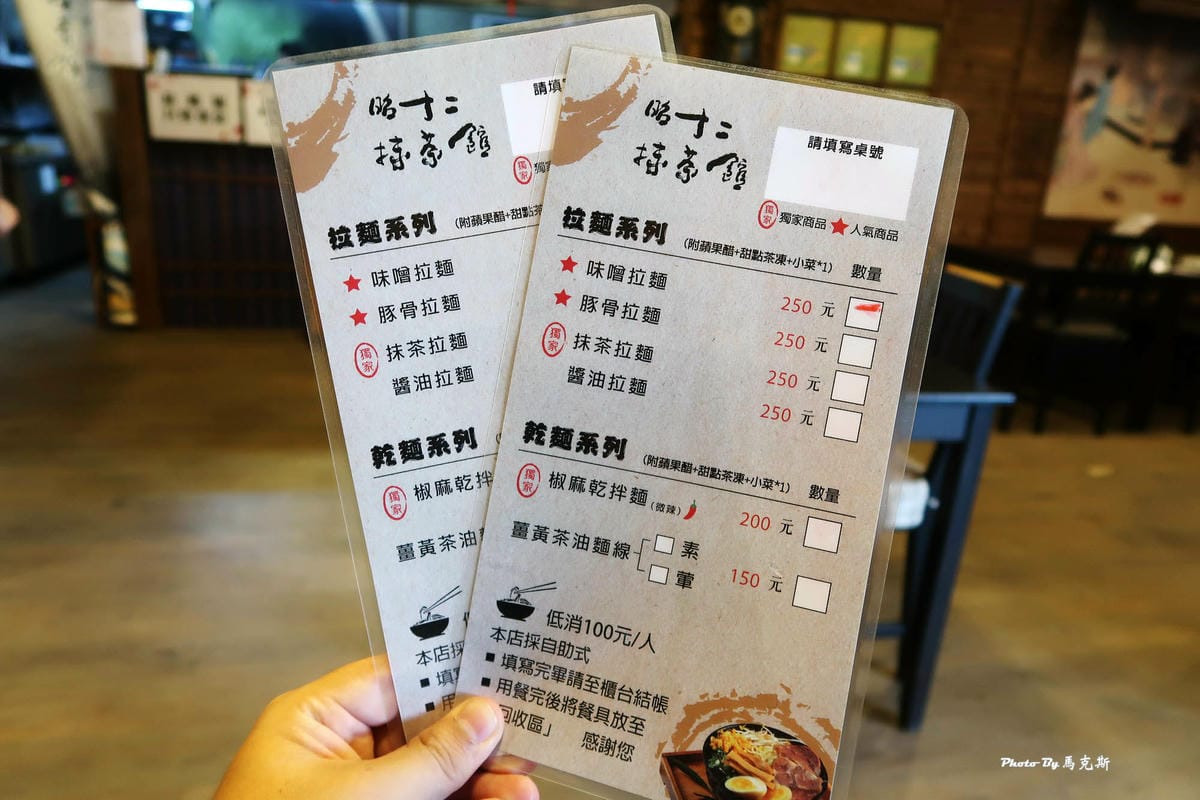 請填
獨家 獨家
拉麵系列 (附蘋果醋+甜點茶
★ 味噌拉麵
★ 豚骨拉麵
獨家 抹茶拉麵
醬油拉麵
乾麵系列
獨家 椒麻乾拌
薑黃茶油麵
本店採
■ 填寫
■ 用
昭十二
抹茶館
請填寫桌號
獨家 獨家商品 ★ 人氣商品
拉麵系列 (附蘋果醋+甜點茶凍+小菜*1) 數量
★ 味噌拉麵 250 元
★ 豚骨拉麵 250 元
獨家 抹茶拉麵 250 元
醬油拉麵 250 元
乾麵系列 (附蘋果醋+甜點茶凍+小菜*1) 數量
獨家 椒麻乾拌麵 (微辣) 200 元
薑黃茶油麵線 素 葷 150 元
低消100元/人
本店採自助式
■ 填寫完畢請至櫃台結帳
■ 用餐完後將餐具放至
回收區」 感謝您
Photo By 馬克斯